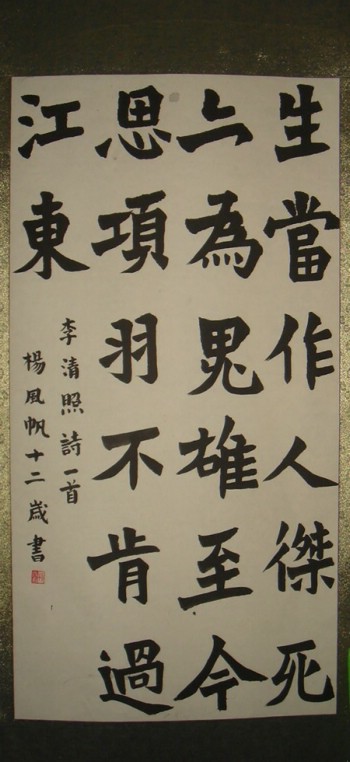 生當作人傑死
亦為鬼雄至今
思項羽不肯過
江東
李清照詩一首
楊風帆十二歲書